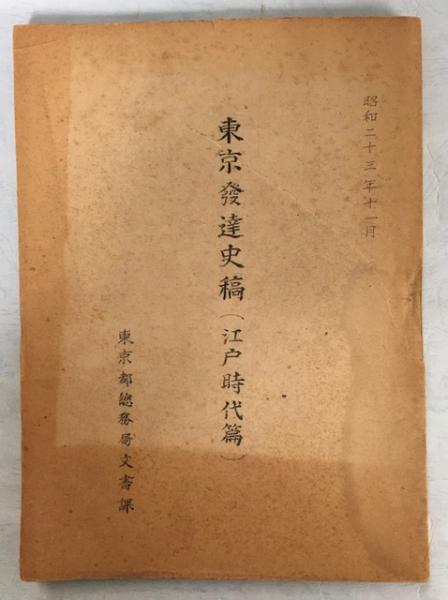 昭和二十三年十一月
東京發達史稿（江戸時代篇）
東京都總務局文書課